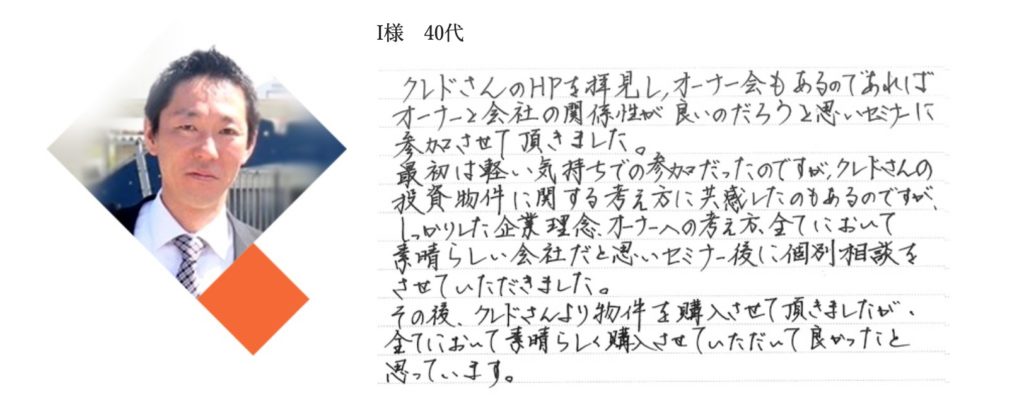 I様　40代
クレドさんのHPを拝見し、オーナー会もあるのであれば
オーナーと会社の関係性が良いのだろうと思いセミナーに
参加させて頂きました。
最初は軽い気持ちでの参加だったのですが、クレドさんの
投資物件に関する考え方に共感したのもあるのですが、
しっかりした企業理念、オーナーへの考え方、全てにおいて
素晴らしい会社だと思いセミナー後に個別相談を
させていただきました。
その後、クレドさんより物件を購入させて頂きましたが、
全てにおいて素晴らしく購入させていただいて良かったと
思っています。